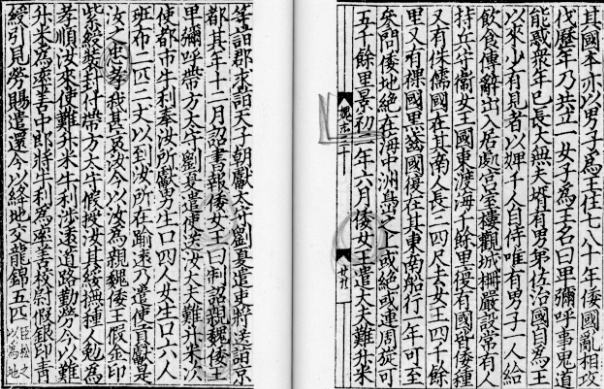 其國本亦以男子爲王住七八十年倭國亂相攻
伐歷年乃共立一女子爲王名曰卑彌呼事鬼道
能惑衆年已長大無夫壻有男弟佐治國自爲王
以來少有見者以婢千人自侍唯有男子一人給
飲食傳辭出入居處宮室樓觀城柵嚴設常有人
持兵守衞女王國東渡海千餘里復有國皆倭種
又有侏儒國在其南人長三四尺去女王四千餘
里又有裸國黑齒國復在其東南船行一年可至
參問倭地絶在海中洲島之上或絶或連周旋可
五千餘里景初二年六月倭女王遣大夫難升米
魏志三十
廿九
等詣郡求詣天子朝獻太守劉夏遣吏將送詣京
都其年十二月詔書報倭女王曰制詔親魏倭王
卑彌呼帶方太守劉夏遣使送汝大夫難升米次
使都市牛利奉汝所獻男生口四人女生口六人
班布二匹二丈以到汝所在踰遠乃遣使貢獻是
汝之忠孝我甚哀汝今以汝爲親魏倭王假金印
紫綬裝封付帶方太守假授汝其綏撫種人勉爲
孝順汝來使難升米牛利涉遠道路勤勞今以難
升米爲率善中郎將牛利爲率善校尉假銀印靑
綬引見勞賜遣還今以絳地交龍錦五匹
臣松之
以爲地